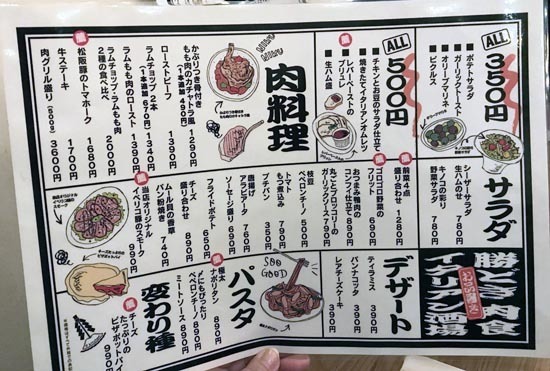 ALL 350円
ポテトサラダ
ガーリックトースト
オリーブマリネ
ピクルス
ALL 500円
チキンとお豆のサラダ仕立て
焼きたてイタリアンオムレツ
レバーペーストのブリュレ
生ハム盛り
肉料理
かぶりつき骨付き
もも肉のカチャトーラ風
1290円
ローストビーフ 1390円
ラムチョップ2本 1340円
(1本追加 670円)
ラムもも肉のロースト 1390円
ラムチョップ・ラムもも肉
2種の食べ比べ
松阪豚のトマホーク 1680円
牛ステーキ 1700円
肉グリル盛り (500g) 3600円
サラダ
シーザーサラダ
生ハムのせ 780円
キノコの彩り
野菜サラダ 780円
前菜4点
盛り合わせ 1280円
ゴロゴロ野菜の
フリット 690円
おつまみ鴨肉の
コンフィ仕立て 890円
丸ごとブロッコリーの
ガーリックソース 790円
枝豆
ペペロンチーノ 500円
トマト
もつ煮込み 790円
プチパン
唐揚げ
アラビアータ 780円
ソーセージ盛り 690円
フライドポテト 650円
チーズ
盛り合わせ 890円
ムール貝の香草
パン粉焼き 740円
当店オリジナル
イベリコ豚のスモーク 990円
勝どき肉食
イタリアン酒場
デザート
ティラミス
パンナコッタ
レアチーズケーキ
390円
SOO GOOD
パスタ
極太
ナポリタン 890円
〆にもぴったり
ペペロンチーノ 890円
ミートソース 890円
変わり種
チーズ
たっぷりの
ピザポットパイ 990円